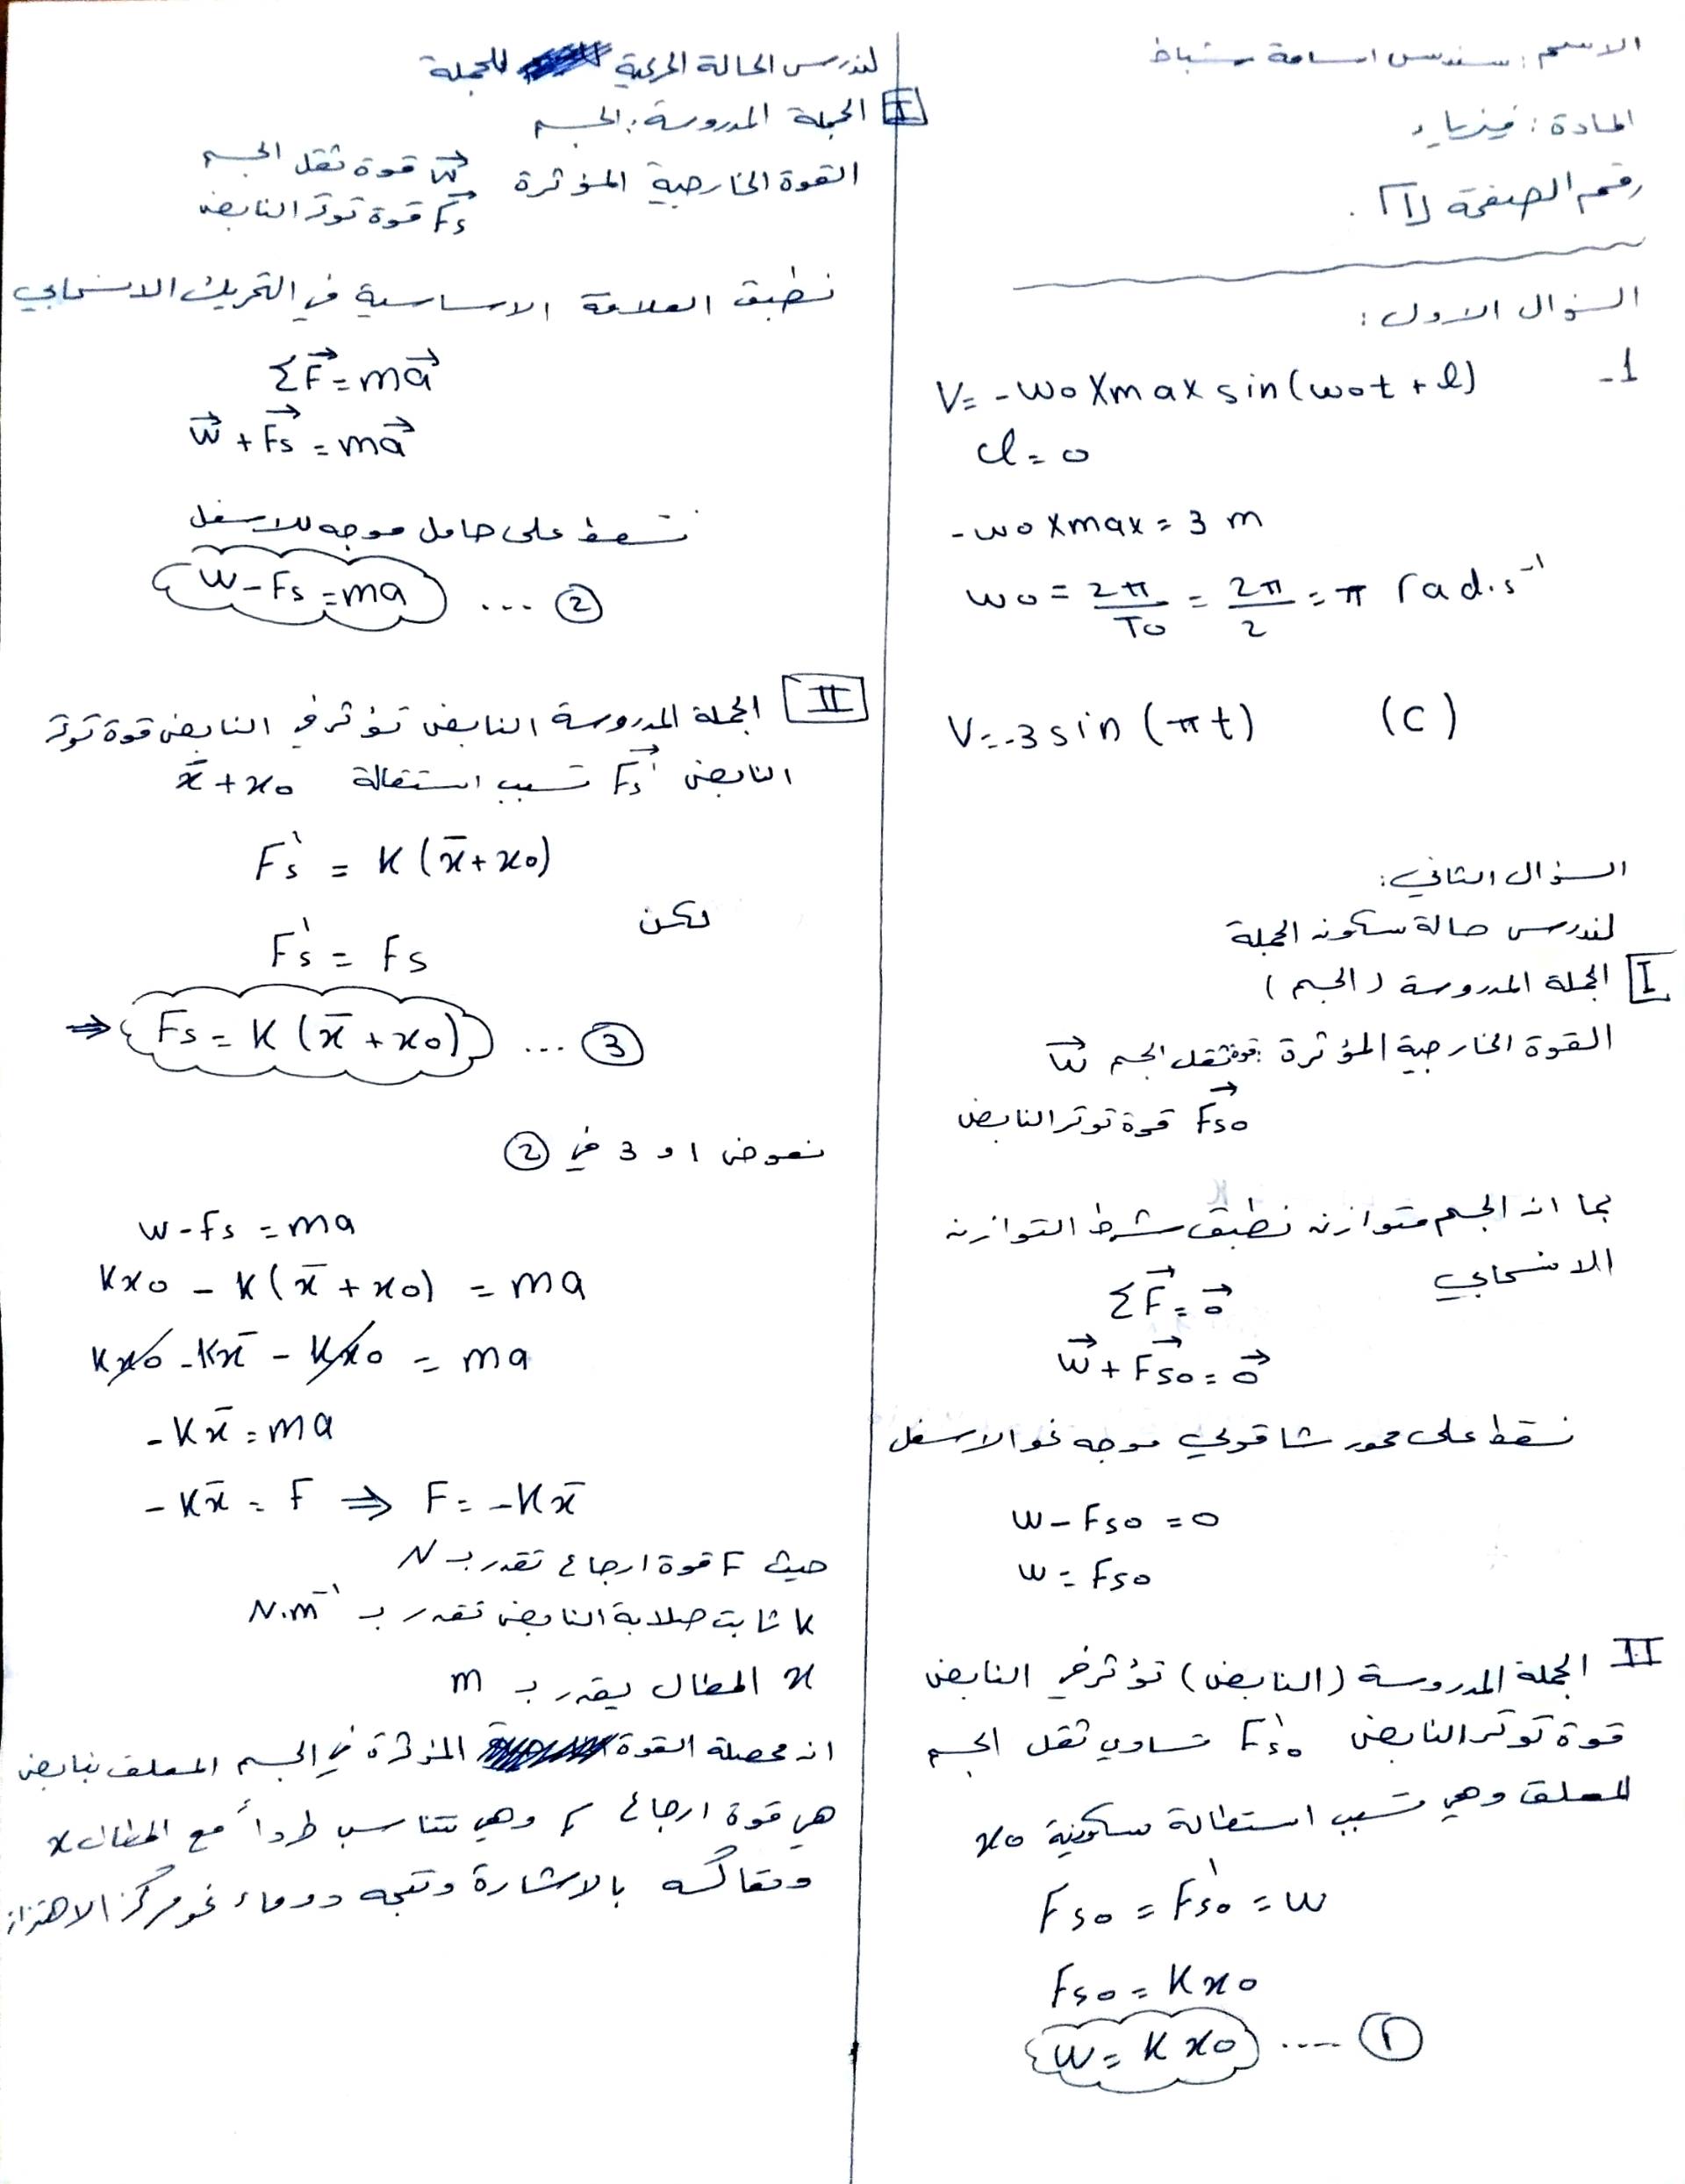 الاسم : سندس اسامة شباط
المادة : فيزياء
رقم الصفحة [1] .
السؤال الاول :
1- V= -ω0 Xmax sin(ω0t + φ)
φ = 0
-ω0 Xmax = 3 m
ω0 = 2π/T0 = 2π/2 = π rad.s⁻¹
V=-3 sin (πt) (C)
السؤال الثاني :
لندرس حالة سكون الجملة
I الجملة المدروسة ( الجسم )
القوة الخارجية المؤثرة : قوة ثقل الجسم W⃗
F⃗s0 قوة توتر النابض
بما ان الجسم متوازن نطبق شرط التوازن
الانسحابي
ΣF⃗ = 0⃗
W⃗ + F⃗s0 = 0⃗
نسقط على محور شاقولي موجه نحو الاسفل
W - Fs0 = 0
W = Fs0
II الجملة المدروسة (النابض) تؤثر في النابض
قوة توتر النابض F's0 تساوي ثقل الجسم
المعلق وهي تسبب استطالة سكونية x0
Fs0 = F's0 = W
Fs0 = K x0
W = K x0 .... ①
لندرس الحالة الحركية للجملة
I الجملة المدروسة : الجسم
القوة الخارجية المؤثرة W⃗ قوة ثقل الجسم
F⃗s قوة توتر النابض
نطبق العلاقة الاساسية في التحريك الانسحابي
ΣF⃗ = ma⃗
W⃗ + F⃗s = ma⃗
نسقط على حامل موجه للاسفل
W - Fs = ma ... ②
II الجملة المدروسة النابض تؤثر في النابض قوة توتر
النابض F⃗'s تسبب استقالة x̄ + x0
F's = K (x̄ + x0)
لكن
F's = Fs
⇒ Fs = K (x̄ + x0) ... ③
نعوض 1 و 3 في ②
W - fs = ma
Kx0 - K(x̄ + x0) = ma
Kx0 - Kx̄ - Kx0 = ma
- Kx̄ = ma
- Kx̄ = F ⇒ F = -Kx̄
حيث F قوة ارجاع تقدر بـ N
K ثابت صلابة النابض تقدر بـ N.m⁻¹
x المطال يقدر بـ m
ان محصلة القوة المؤثرة في الجسم المعلق بنابض
هي قوة ارجاع وهي تتناسب طرداً مع المطال x
وتعاكسه بالاشارة وتتجه دوماً نحو مركز الاهتزاز